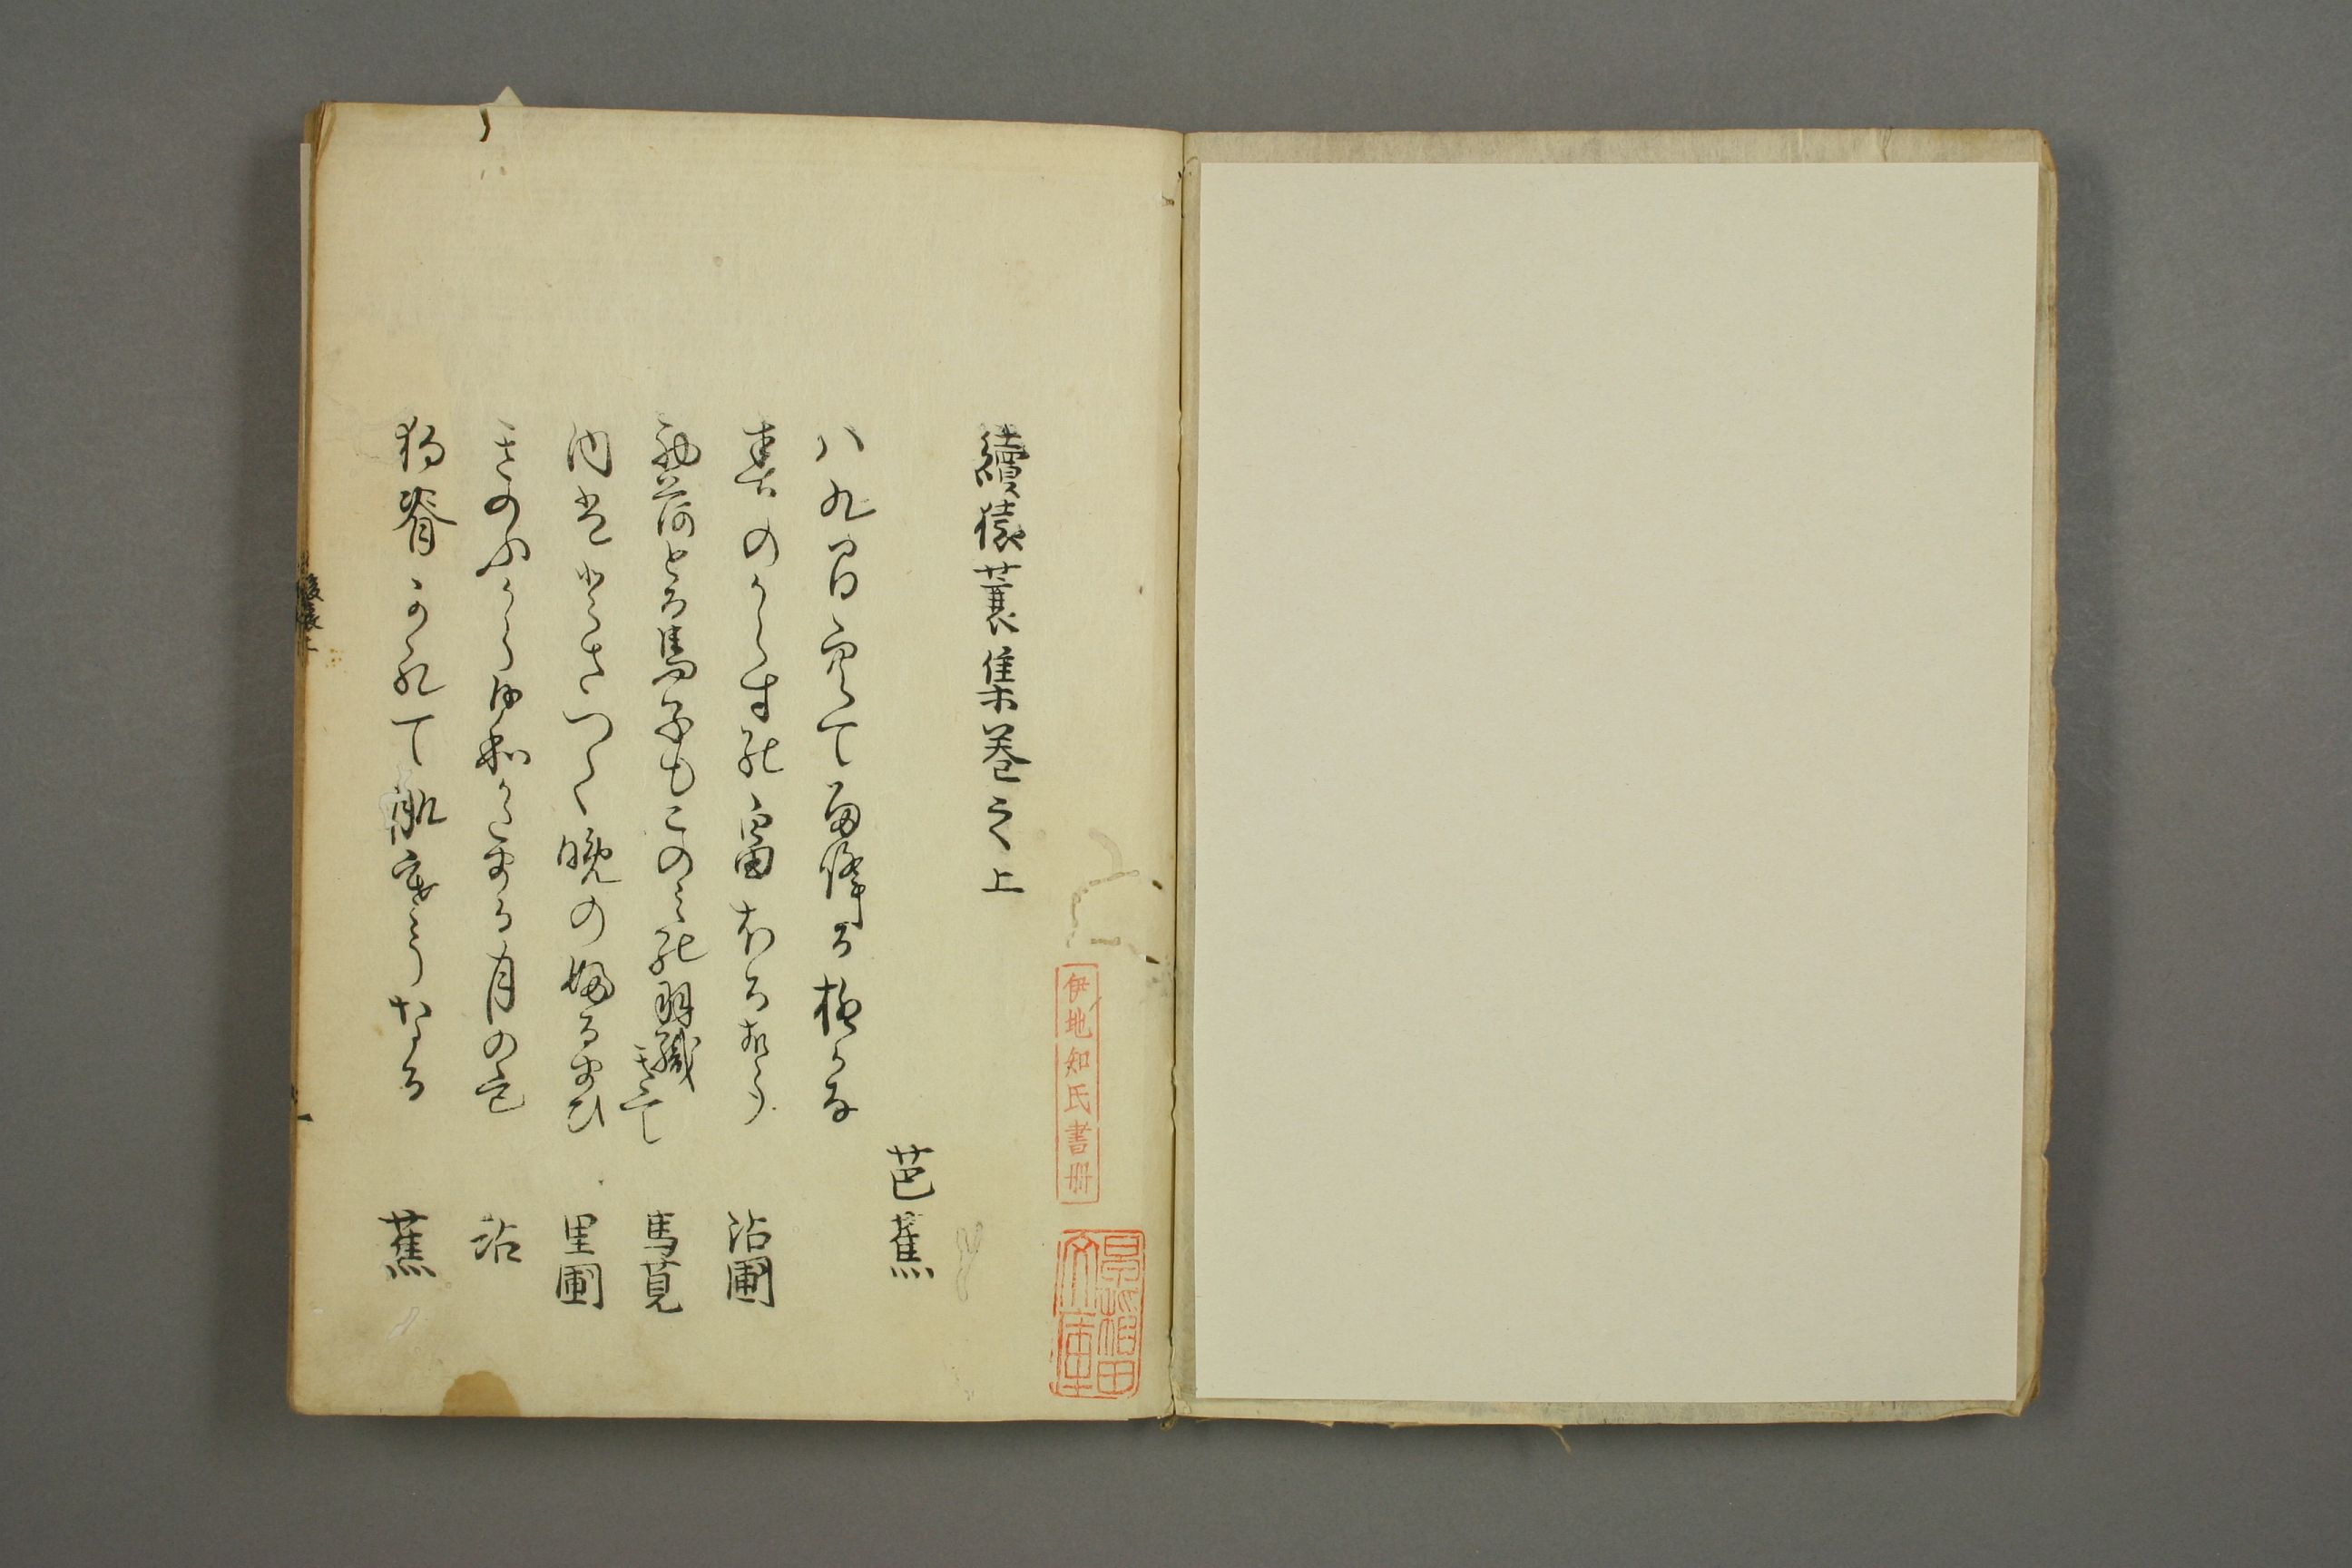 續猿蓑集巻之上
芭蕉
八九間空て雨降る柳かな
春のからすの畠ほる聲
沾圃
初荷とる馬子もこのみの羽織きて
馬莧
内はとさつく晩の振るまひ
里圃
きのふから日和かたまる月の色
沾
狗脊かれて肌寒うなる
蕉
伊地知氏書冊